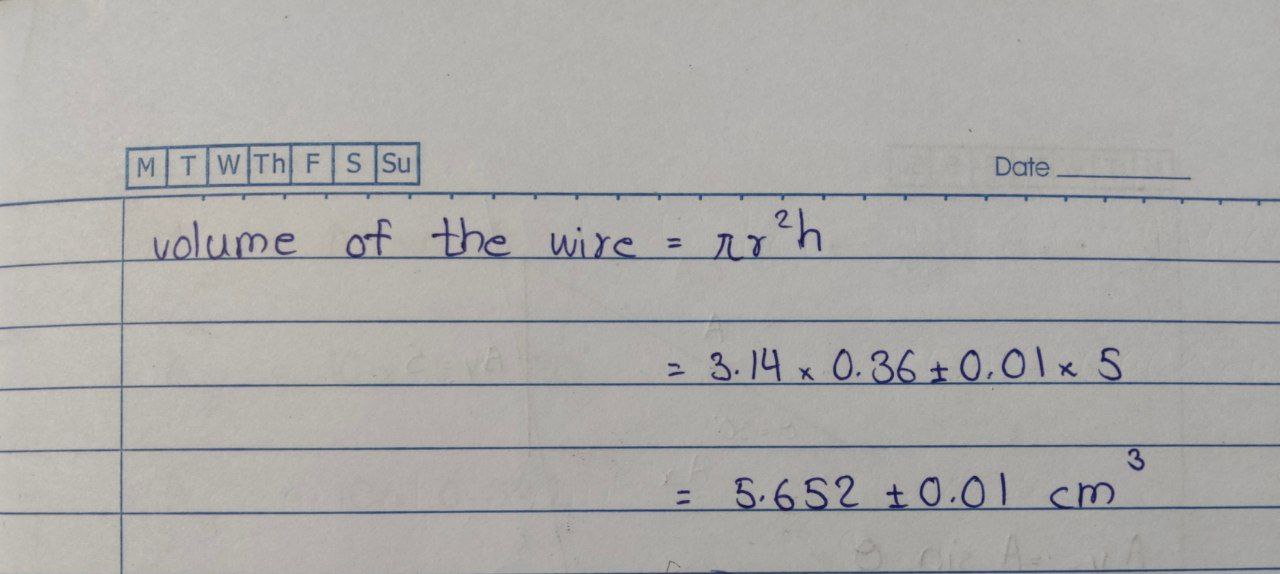 M T W Th F S Su
Date
volume of the wire = πr²h
= 3.14 × 0.36 ± 0.01 × 5
= 5.652 ± 0.01 cm³